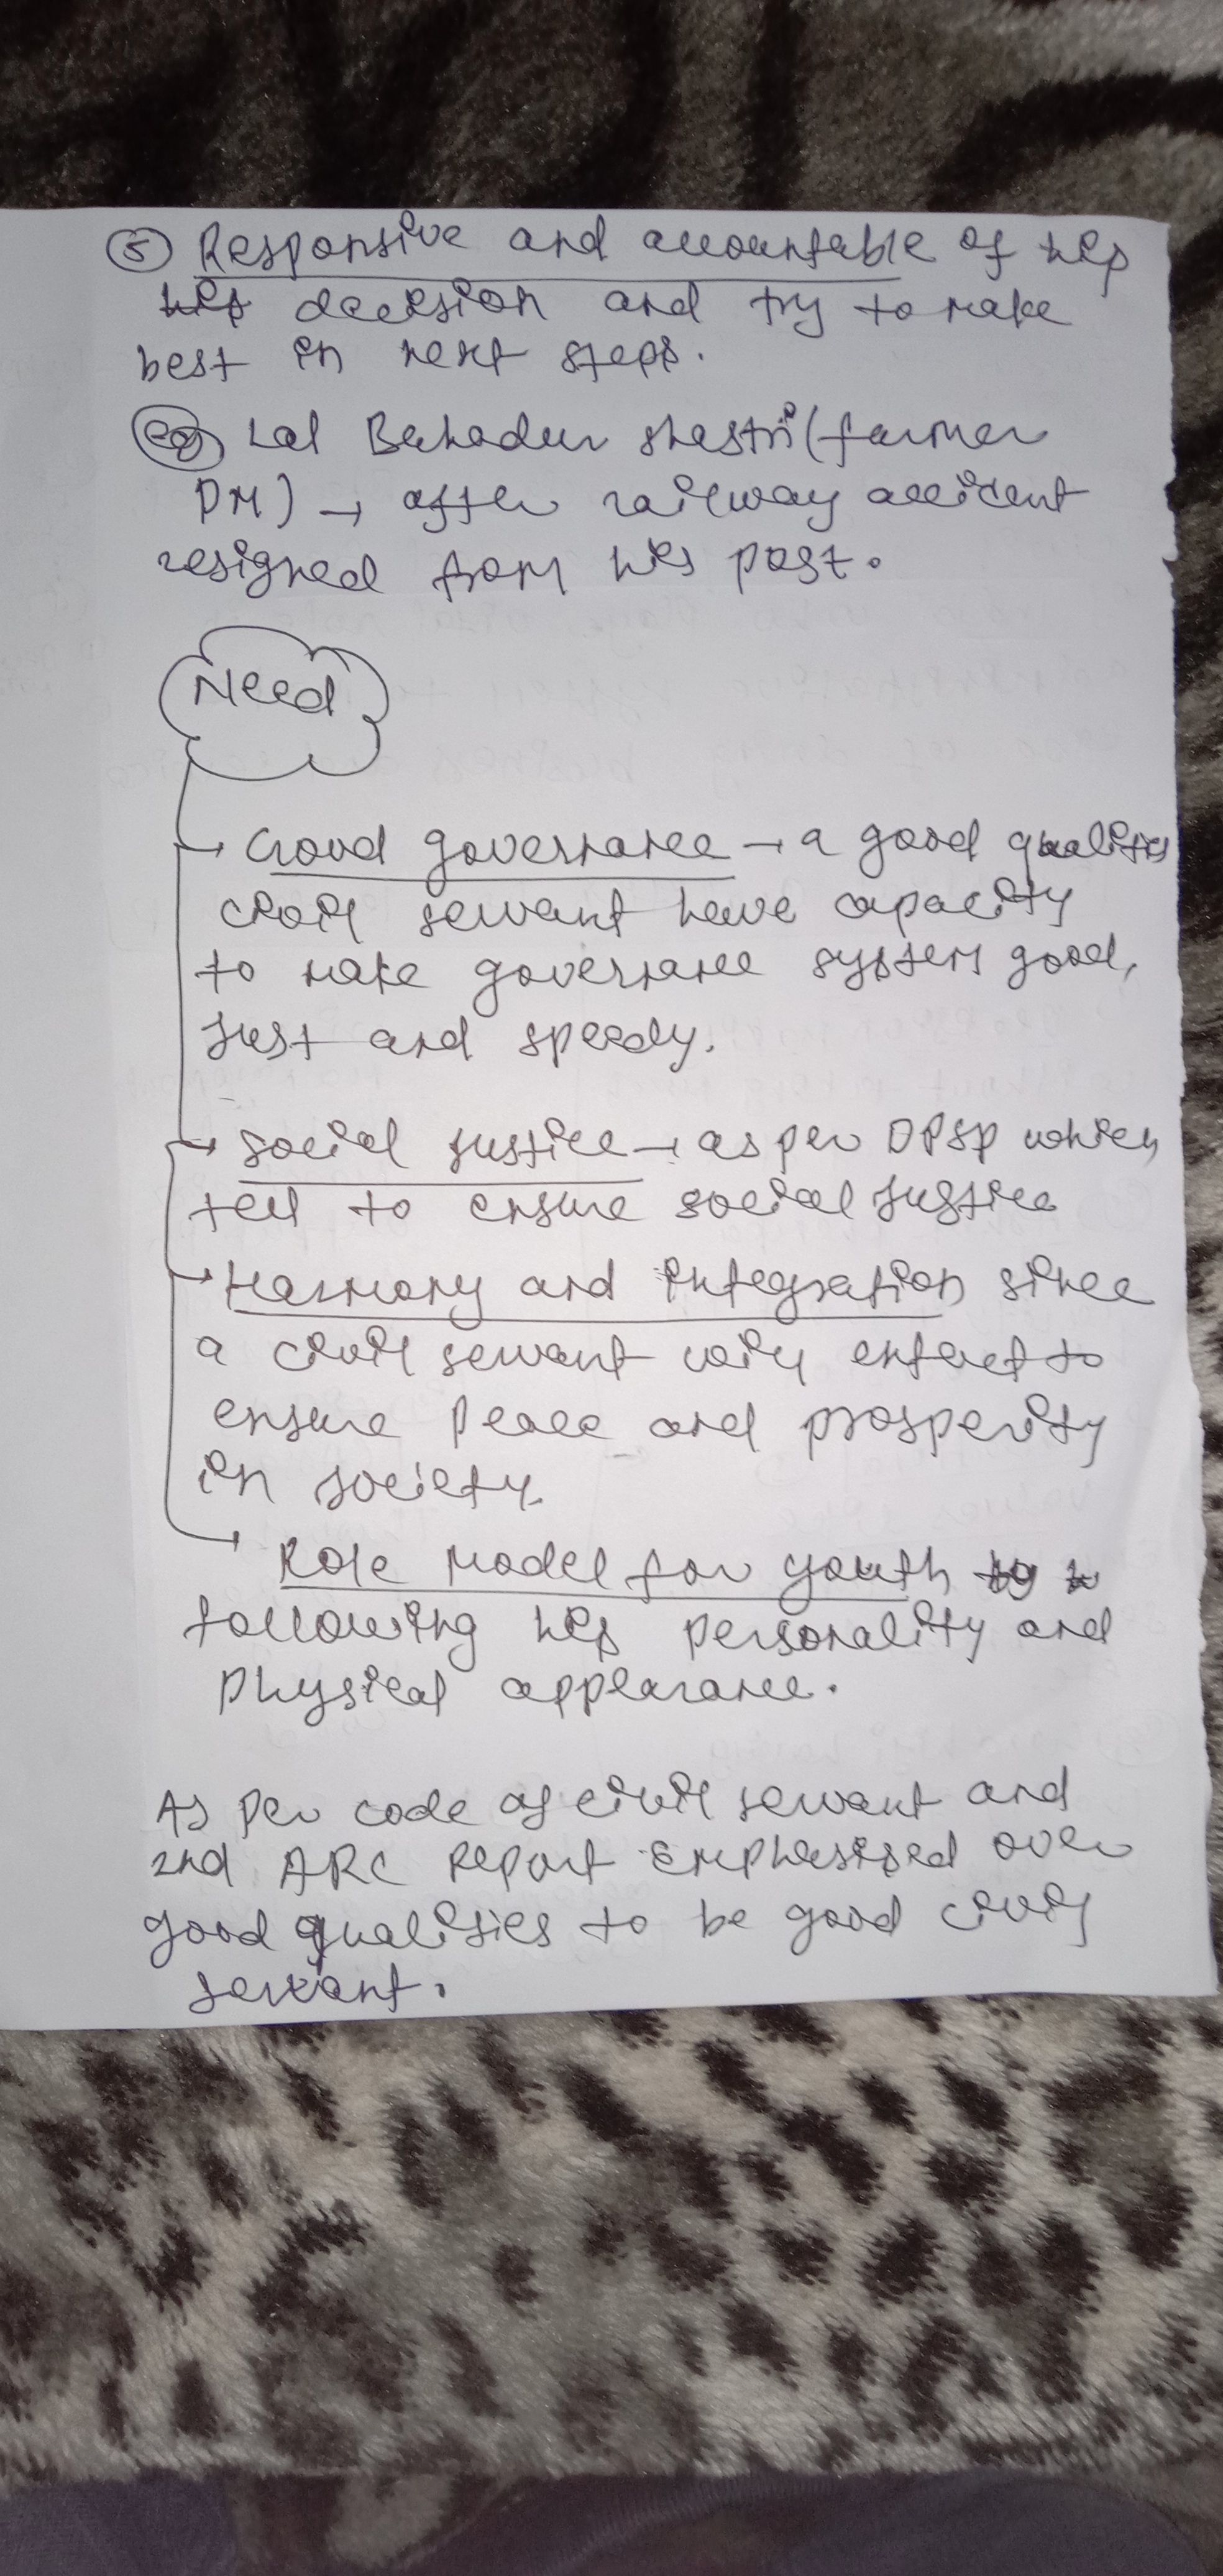 (5) Responsive and accountable of his
his decision and try to make
best in next steps.
(eg) Lal Bahadur Shastri (former
PM) → after railway accident
resigned from his post.
Need
→ Good governance → a good qualities
civil servant have capacity
to make governance system good,
just and speedy.
→ social justice → as per DPSP which
tell to ensure social justice
→ Harmony and integration since
a civil servant will
ensure peace and prosperity
in society.
→ Role model for youth by
following his personality and
physical appearance.
As per code of civil servant and
2nd ARC report Emphasised over
good qualities to be good civil
servant.